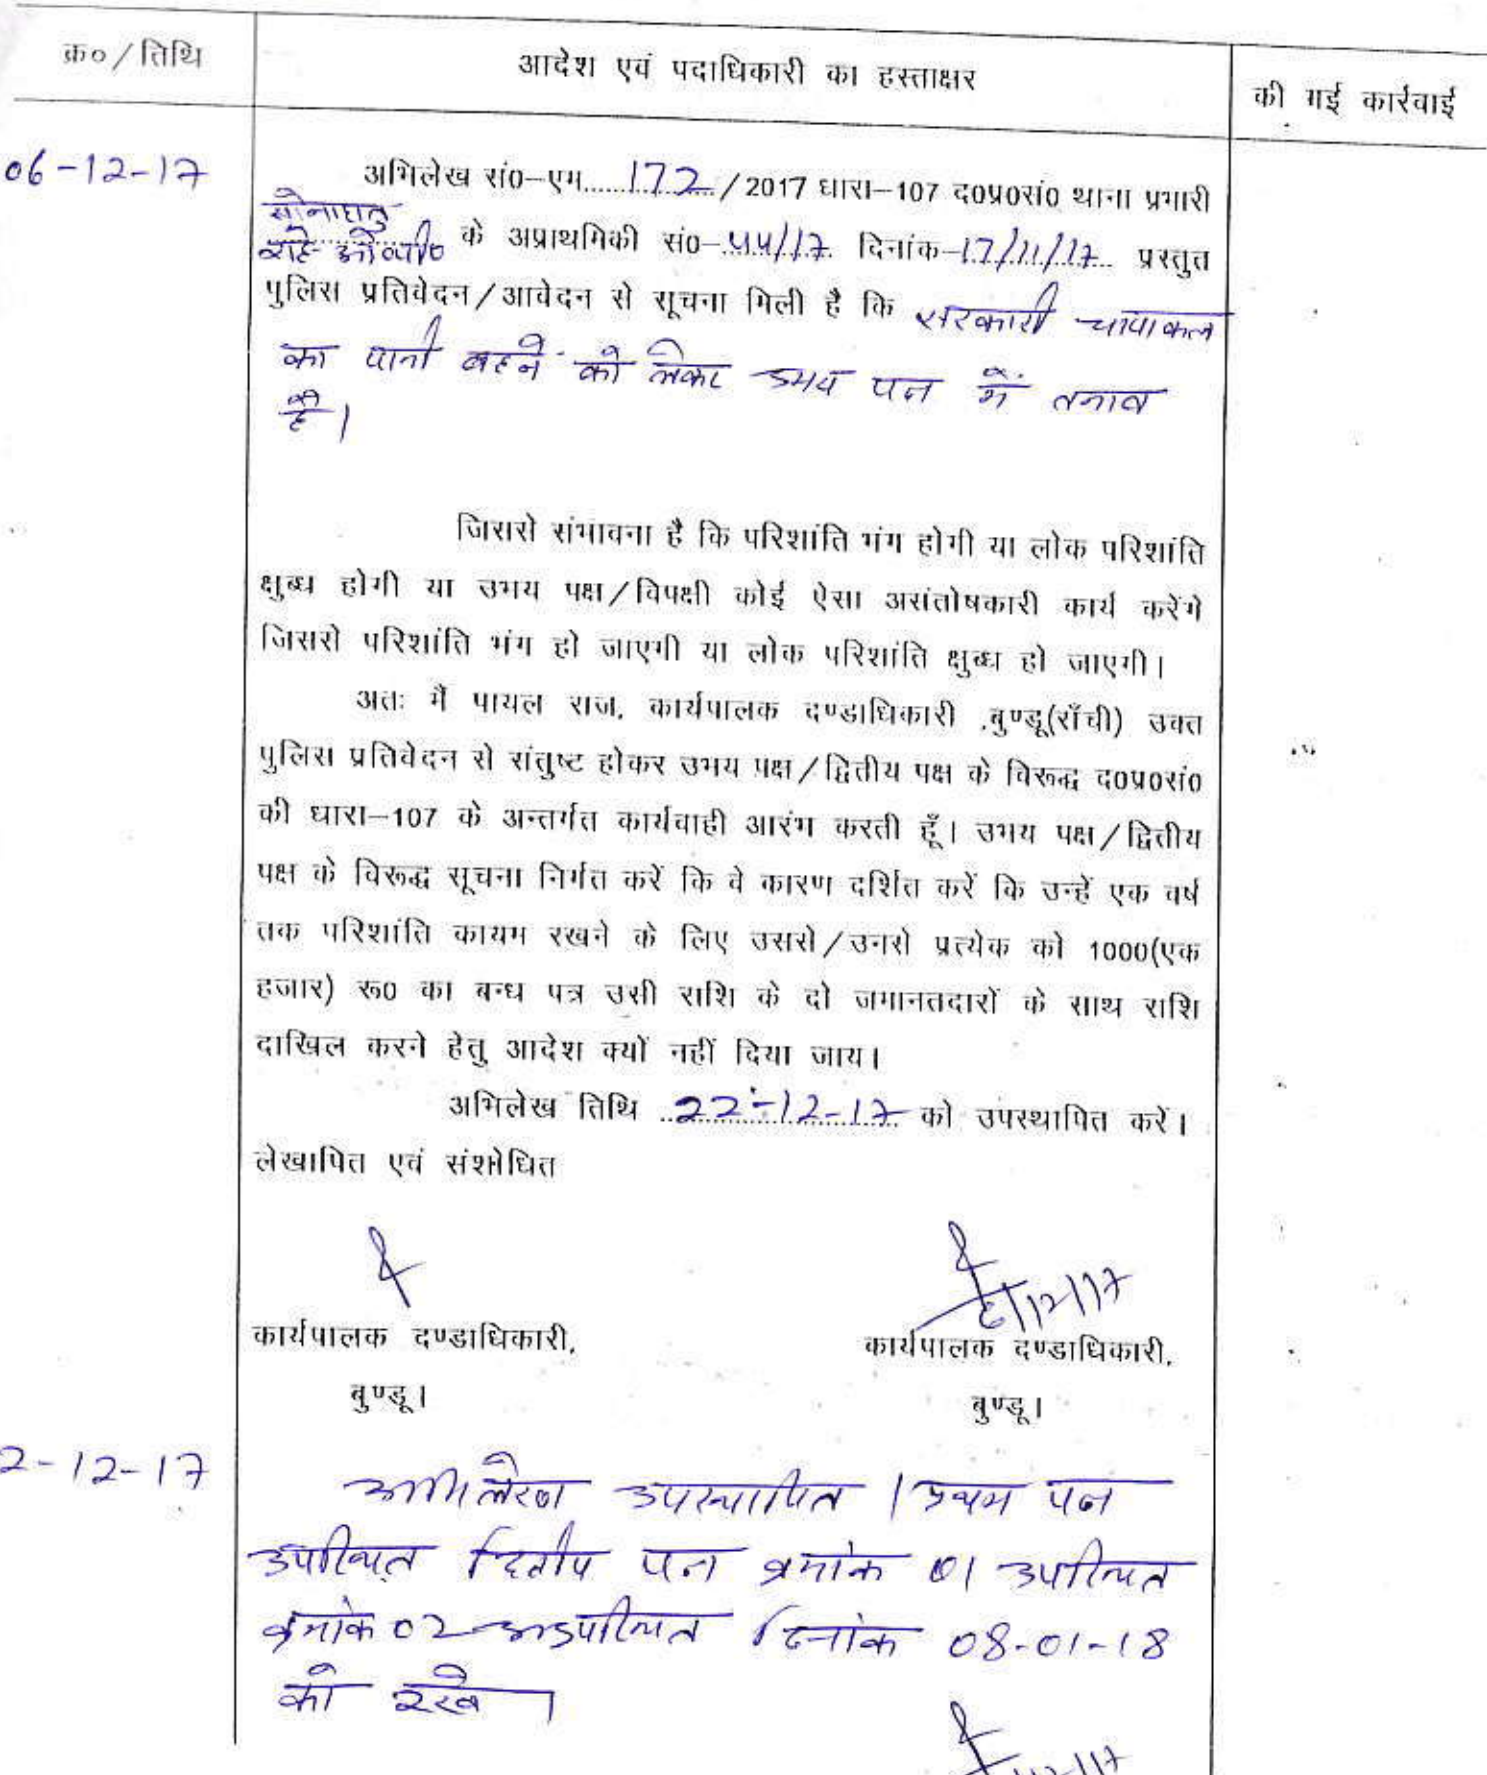 क्र० / तिथि
आदेश एवं पदाधिकारी का हस्ताक्षर
की गई कार्रवाई
06-12-17
अभिलेख सं0-एम.....172../2017 धारा-107 द0प्र0सं0 थाना प्रभारी
सोनाहातु
राहे ओ०पी० के अप्राथमिकी सं0-44/17. दिनांक-17/11/17.. प्रस्तुत
पुलिस प्रतिवेदन/आवेदन से सूचना मिली है कि सरकारी चापाकल
का पानी बहने को लेकर उभय पक्ष में तनाव
है।
जिससे संभावना है कि परिशांति भंग होगी या लोक परिशांति
क्षुब्ध होगी या उभय पक्ष/विपक्षी कोई ऐसा असंतोषकारी कार्य करेंगे
जिससे परिशांति भंग हो जाएगी या लोक परिशांति क्षुब्ध हो जाएगी।
अतः मैं पायल राज, कार्यपालक दण्डाधिकारी ,बुण्डू(राँची) उक्त
पुलिस प्रतिवेदन से संतुष्ट होकर उभय पक्ष/द्वितीय पक्ष के विरूद्ध द0प्र0सं0
की धारा-107 के अन्तर्गत कार्यवाही आरंभ करती हूँ। उभय पक्ष/द्वितीय
पक्ष के विरूद्ध सूचना निर्गत करें कि वे कारण दर्शित करें कि उन्हें एक वर्ष
तक परिशांति कायम रखने के लिए उससे/उनसे प्रत्येक को 1000(एक
हजार) रू0 का बन्ध पत्र उसी राशि के दो जमानतदारों के साथ राशि
दाखिल करने हेतु आदेश क्यों नहीं दिया जाय।
अभिलेख तिथि ..22-12-17 को उपस्थापित करें।
लेखापित एवं संशोधित
6/12/17
कार्यपालक दण्डाधिकारी,
कार्यपालक दण्डाधिकारी,
बुण्डू।
बुण्डू।
2-12-17
अभिलेख उपस्थापित । प्रथम पक्ष
उपस्थित द्वितीय पक्ष क्रमांक 01 उपस्थित
क्रमांक 02 अनुपस्थित दिनांक 08-01-18
को रखें ।